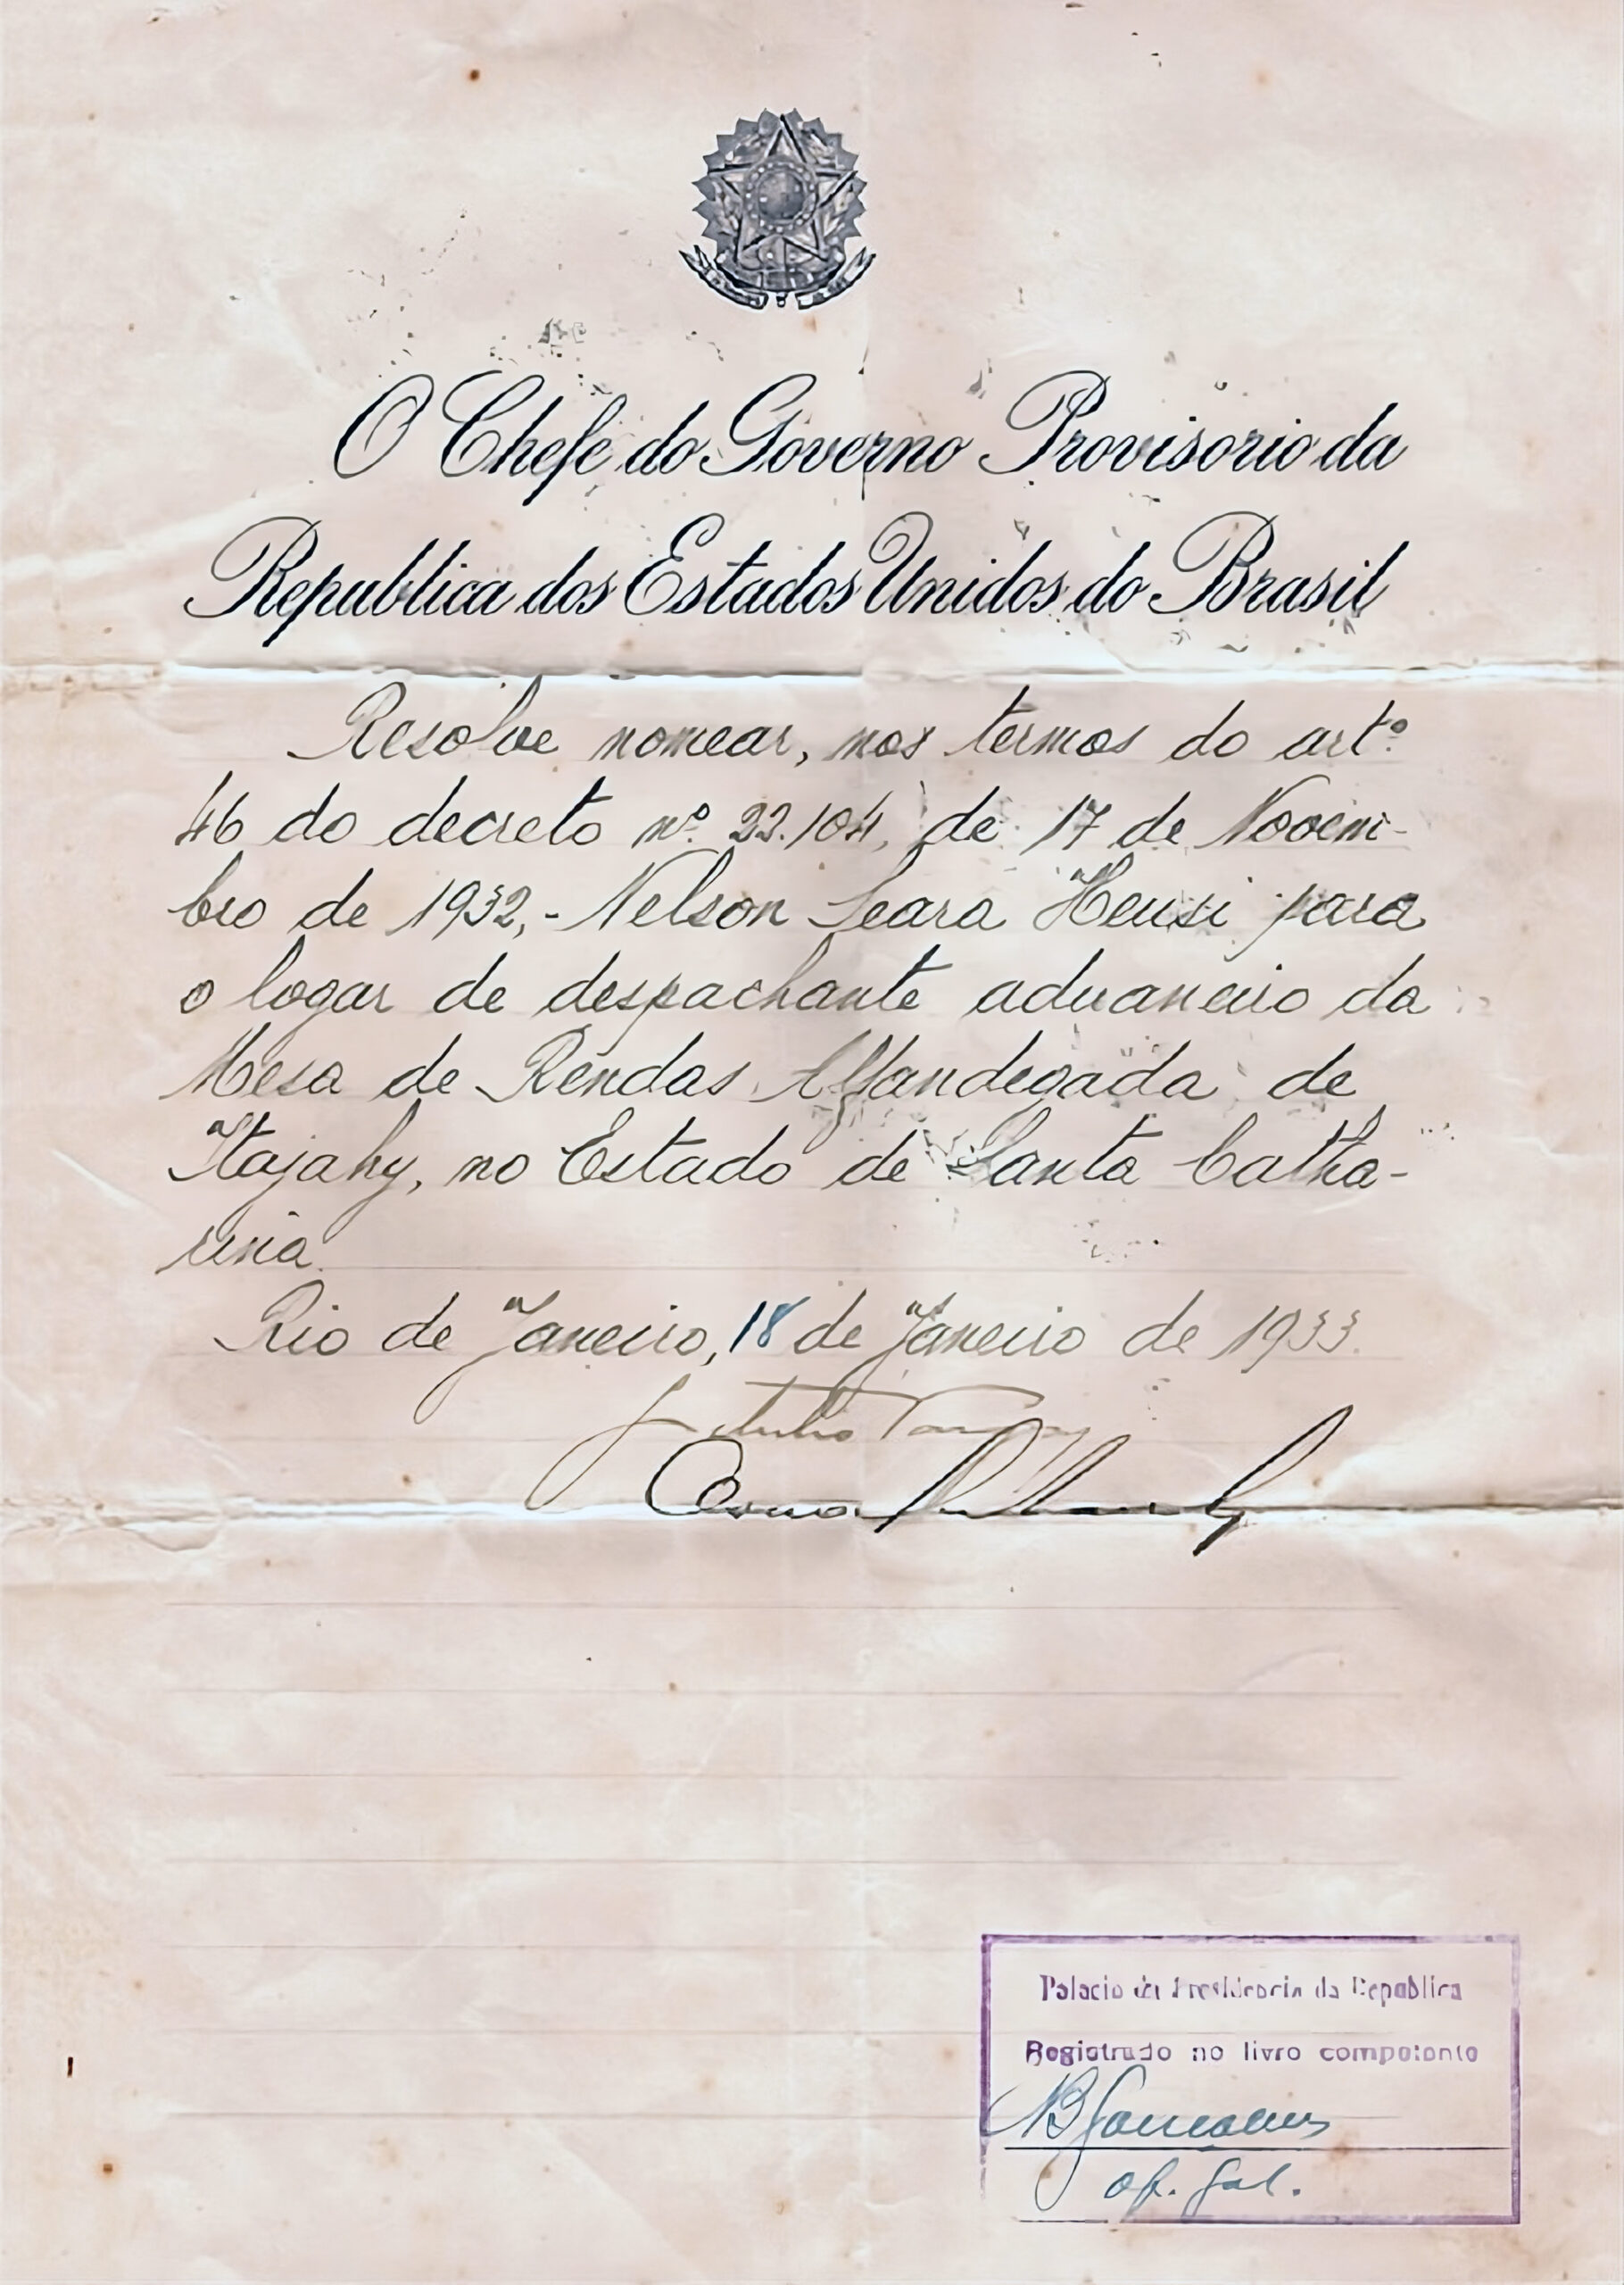 O Chefe do Governo Provisorio da
Republica dos Estados Unidos do Brasil
Resolve nomear, nos termos do artº
46 do decreto nº 22.104, de 17 de Novem-
bro de 1932,- Nelson Seara Heusi para
o logar de despachante aduaneiro da
Mesa de Rendas Alfandegada de
Itajahy, no Estado de Santa Catha-
rina.
Rio de Janeiro, 18 de Janeiro de 1933.
Getulio Vargas
Palacio da Presidencia da Republica
Registrado no livro competente
of. Gal.